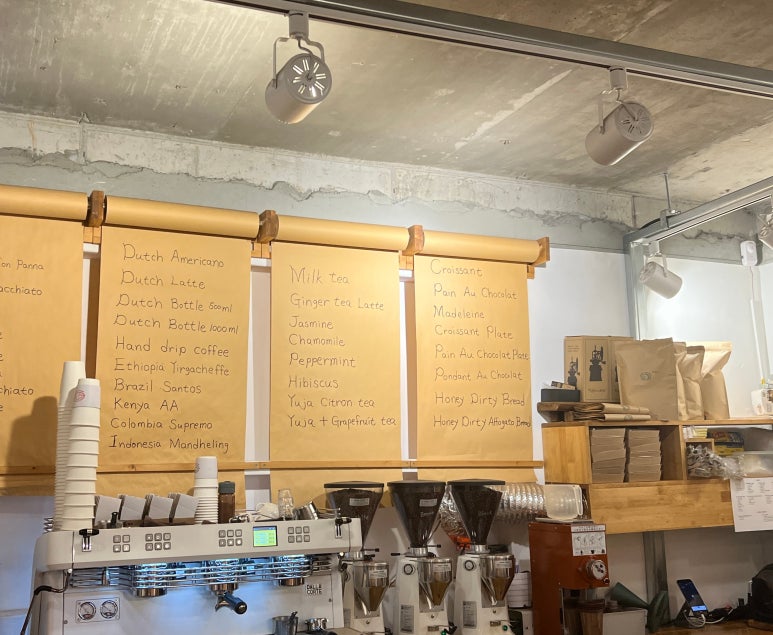 on Panna
acchiato
cchiato
Dutch Americano
Dutch Latte
Dutch Bottle 500ml
Dutch Bottle 1000ml
Hand drip coffee
Ethiopia Yirgacheffe
Brazil Santos
Kenya AA
Colombia Supremo
Indonesia Mandheling
Milk tea
Ginger tea Latte
Jasmine
Chamomile
Peppermint
Hibiscus
Yuja Citron tea
Yuja + Grapefruit tea
Croissant
Pain Au Chocolat
Madeleine
Croissant Plate
Pain Au Chocolat Plate
Pondant Au Chocolat
Honey Dirty Bread
Honey Dirty Affogato Bread
DALLA
CORTE